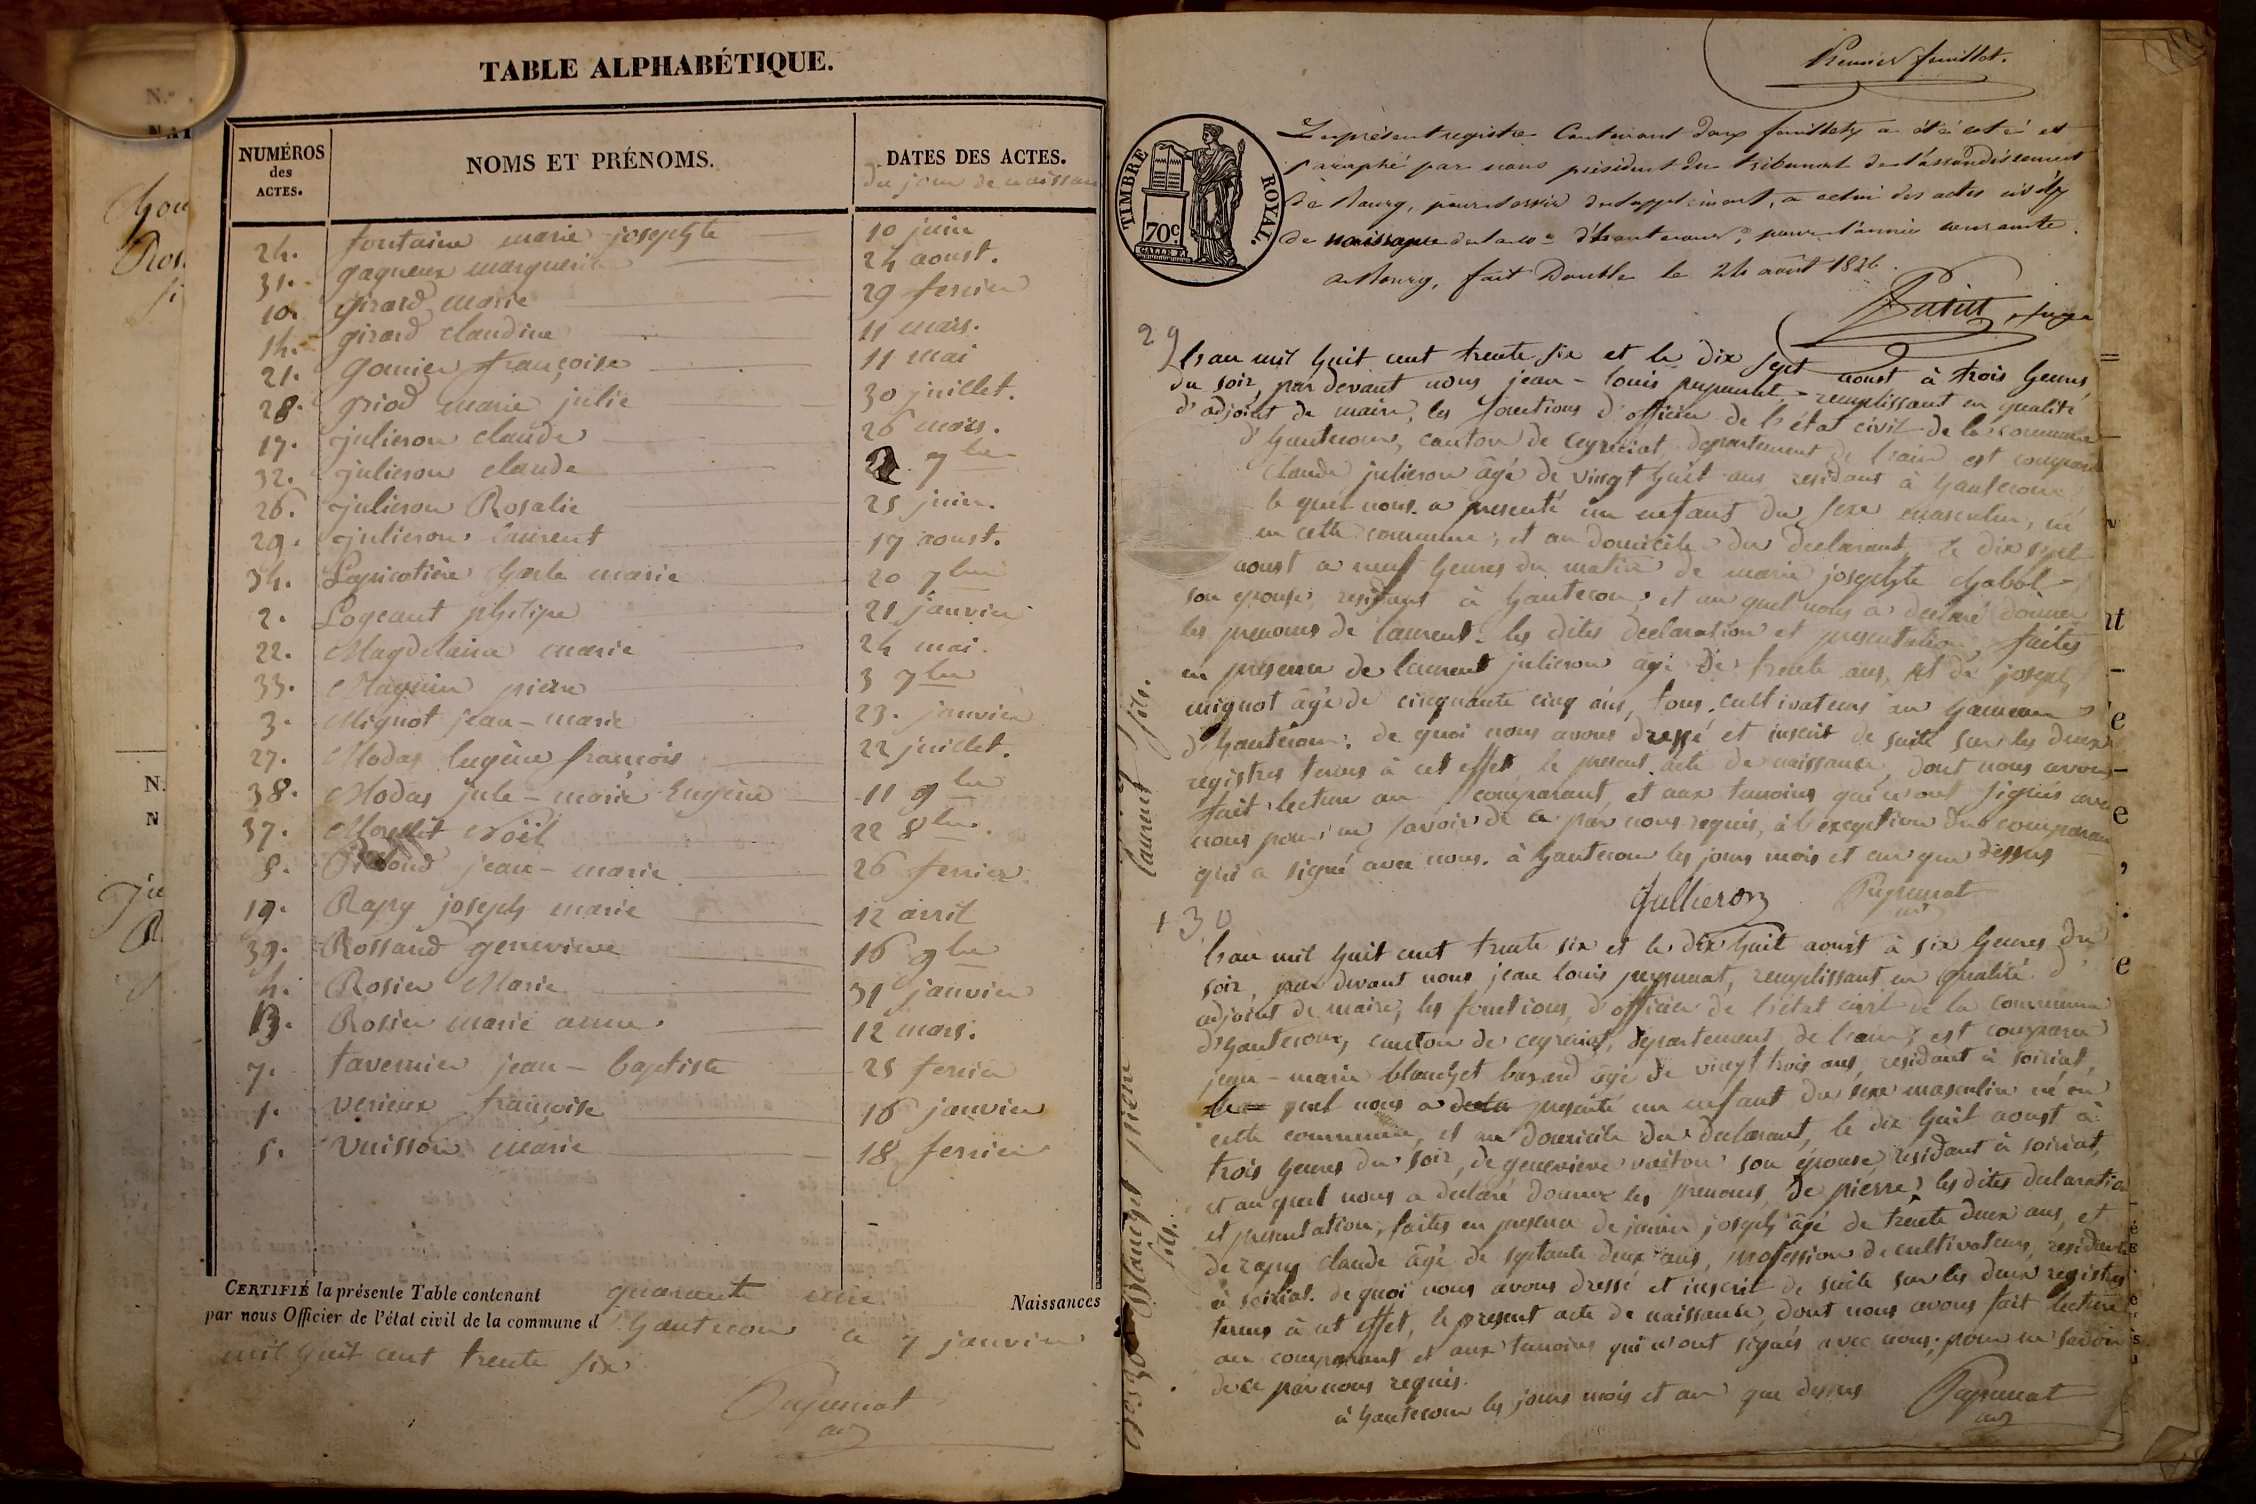 TABLE ALPHABÉTIQUE.
NUMÉROS des ACTES. NOMS ET PRÉNOMS. DATES DES ACTES.
du jour de naissan
24. fontaine marie josephte 10 juin
31. gagneux marguerite 24 aoust.
10. girard marie 29 fevrier
14. girard claudine 11 mars.
21. gomier françoise 11 mai
28. griod marie julie 30 juillet.
17. julieron claude 26 mars.
32. julieron claude 2 7bre
26. julieron Rosalie 25 juin.
29. julieron laurent 17 aoust.
34. marie 20 7bre
2. Logeant philipe 21 janvier
22. Magdelaine marie 24 mai.
33. pierre 3 7bre
3. Mignot jean-marie 23. janvier
27. Modas Eugène françois 22 juillet.
38. Modas jule-marie Eugène 11 9bre
37. noël 22 8bre.
8. jean-marie 26 fevrier.
19. Rapy joseph marie 12 avril
39. Rossand genevieve 16 9bre
4. Rosier Marie 31 janvier
13. Rosier marie anne. 12 mars.
7. tavernier jean-baptiste 25 fevrier
1. verieux françoise 16 janvier
5. vuisson marie 18 fevrier
CERTIFIÉ la présente Table contenant quarante
par nous Officier de l'état civil de la commune d'hautecour ce 7 janvier
mil huit cent trente six
Naissances
Puynunat
Premier feuillet.
TIMBRE ROYAL.
70 c.
Le présent registre Contenant deux feuillets a été coté et
paraphé par nous président du tribunal de l'arrondissement
de Bourg, pour servir de supplément, a celui des actes civils
de naissance de la ce d'hautecour, pour l'année courante.
a Bourg, fait Double le 24 août 1836.
juge
29
laurent fils.
L'an mil huit cent trente six et le dix sept aoust à trois heures
du soir, par devant nous jean-louis puynunat, remplissant en qualité
d'adjoint de maire, les fonctions d'officier de l'état civil de la commune
d'hautecour, canton de ceyzeriat, departement de l'ain est comparu
claude julieron âgé de vingt huit ans residant à hautecour,
le quel nous a presenté un enfant du sexe masculin, né
en cette commune, et au domicile du declarant, le dix sept
aoust a neuf heures du matin de marie josephte chabot
son epouse, residant à hautecour, et au quel nous a declaré donner
les prenoms de laurent. les dites declaration et presentation, faites
en presence de laurent julieron âgé de trente ans, et de joseph
mignot âgé de cinquante cinq ans, tous cultivateurs au hameau
d'hautecour. de quoi nous avons dressé et inscrit de suite sur les deux
registres tenus à cet effet, le present acte de naissance, dont nous avons
fait lecture au comparant, et aux temoins qui n'ont signés avec
nous pour ne savoir de ce par nous requis, à l'exception du comparant
qui a signé avec nous. à hautecour les jours mois et an que dessus
Jullieron Puynunat
30
No. 30 Blanchet pierre fils.
L'an mil huit cent trente six et le dix huit aoust à six heures du
soir, par devant nous jean louis puynunat, remplissant en qualité d'
adjoint de maire, les fonctions, d'officier de l'état civil de la commune
d'hautecour, canton de ceyzeriat, departement de l'ain, est comparu
jean-marie blanchet bazand âgé de vingt trois ans, residant à soiriat,
le quel nous a presenté un enfant du sexe masculin né en
cette commune, et au domicile du declarant, le dix huit aoust à
trois heures du soir, de genevieve vuiton son épouse, residant à soiriat,
et au quel nous a declaré donner les prenoms, de pierre, les dites declaration
et presentation, faites en presence de janin joseph âgé de trente deux ans, et
de rapy claude âgé de septante deux ans, profession de cultivateurs, residants
à soiriat. de quoi nous avons dressé et inscrit de suite sur les deux registres
tenus à cet effet, le present acte de naissance, dont nous avons fait lecture
au comparant et aux temoins qui n'ont signés avec nous, pour ne savoir
de ce par nous requis.
à hautecour les jours mois et an que dessus Puynunat